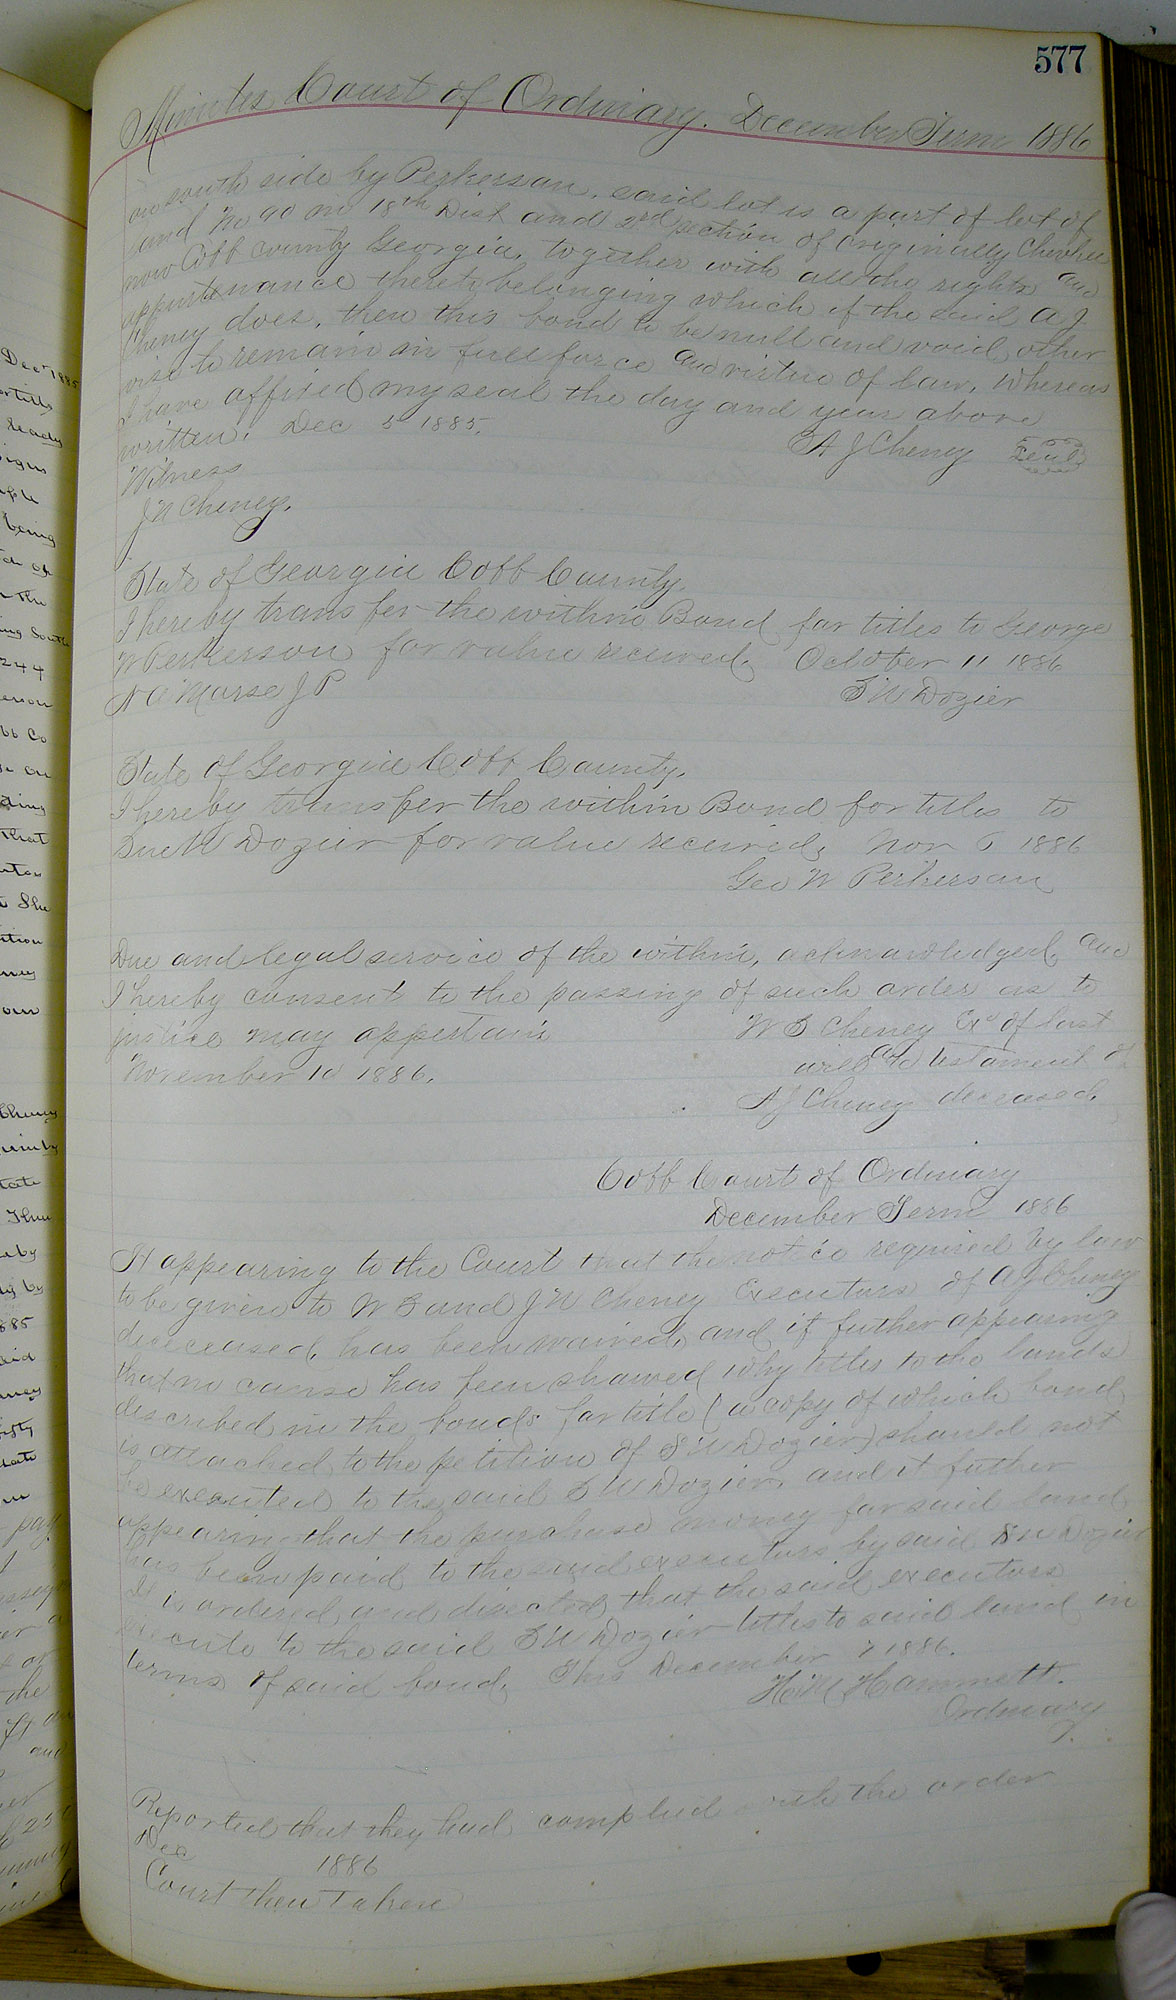 577
Minutes Court of Ordinary. December Term 1886
on south side by Perkerson, said lot is a part of lot of
land No 90 in 18th Dist and 2nd section of originally Cherokee
now Cobb county Georgia, together with all the rights and
appurtenance thereto belonging which if the said A J
Cheney does, then this bond to be null and void, other
wise to remain in full force and virtue of law. Whereas
I have affixed my seal the day and year above
written. Dec 5 1885.
A J Cheney Seal
Witness
J N Cheney.
State of Georgia Cobb County.
I hereby transfer the within Bond for titles to George
W Perkerson for value received, October 11 1886
N A Morse J P
S W Dozier
State of Georgia Cobb County.
I hereby transfer the within Bond for titles to
Dozier for value received, Nov 6 1886
Geo W Perkerson
Due and legal service of the within, acknowledged, and
I hereby consent to the passing of such order as to
justice may appertain
November 10 1886.
W S Cheney Exr of last
will and testament of
A J Cheney deceased.
Cobb Court of Ordinary
December Term 1886
It appearing to the Court that the notice required by law
to be given to W S and J N Cheney Executors of A J Cheney
dececeased, has been waived, and it futher appearing
that no cause has been showed why titles to the lands
described in the bonds for title (a copy of which bond
is attached to the petition of S W Dozier) should not
be executed to the said S W Dozier, and it futher
appearing that the purchase money for said land
has been paid to the said executors by said S W Dozier
It is ordered, and directed, that the said executors
execute to the said S W Dozier titles to said land in
terms of said bond. This December 7 1886.
H M Hammett.
Ordinary
Reported that they had complied with the order
Dec 1886
Court then taken